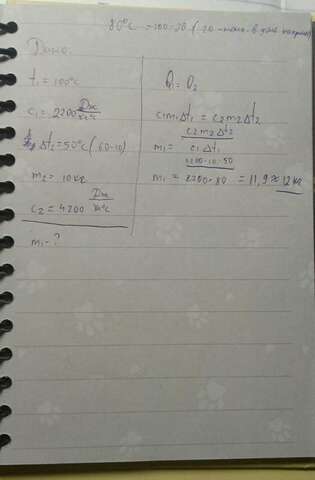 80°C - 100-20 (20 -
Дано:
t₁ = 100°C
c₁ = 2200 Дж/кг°C
Δt₂ = 50°C (60-10)
m₂ = 10 кг
c₂ = 4200 Дж/кг°C
m₁ - ?
Q₁ = Q₂
c₁m₁Δt₁ = c₂m₂Δt₂
m₁ = c₂m₂Δt₂ / c₁Δt₁
m₁ = 4200·10·50 / 2200·80 = 11,9 ≈ 12 кг